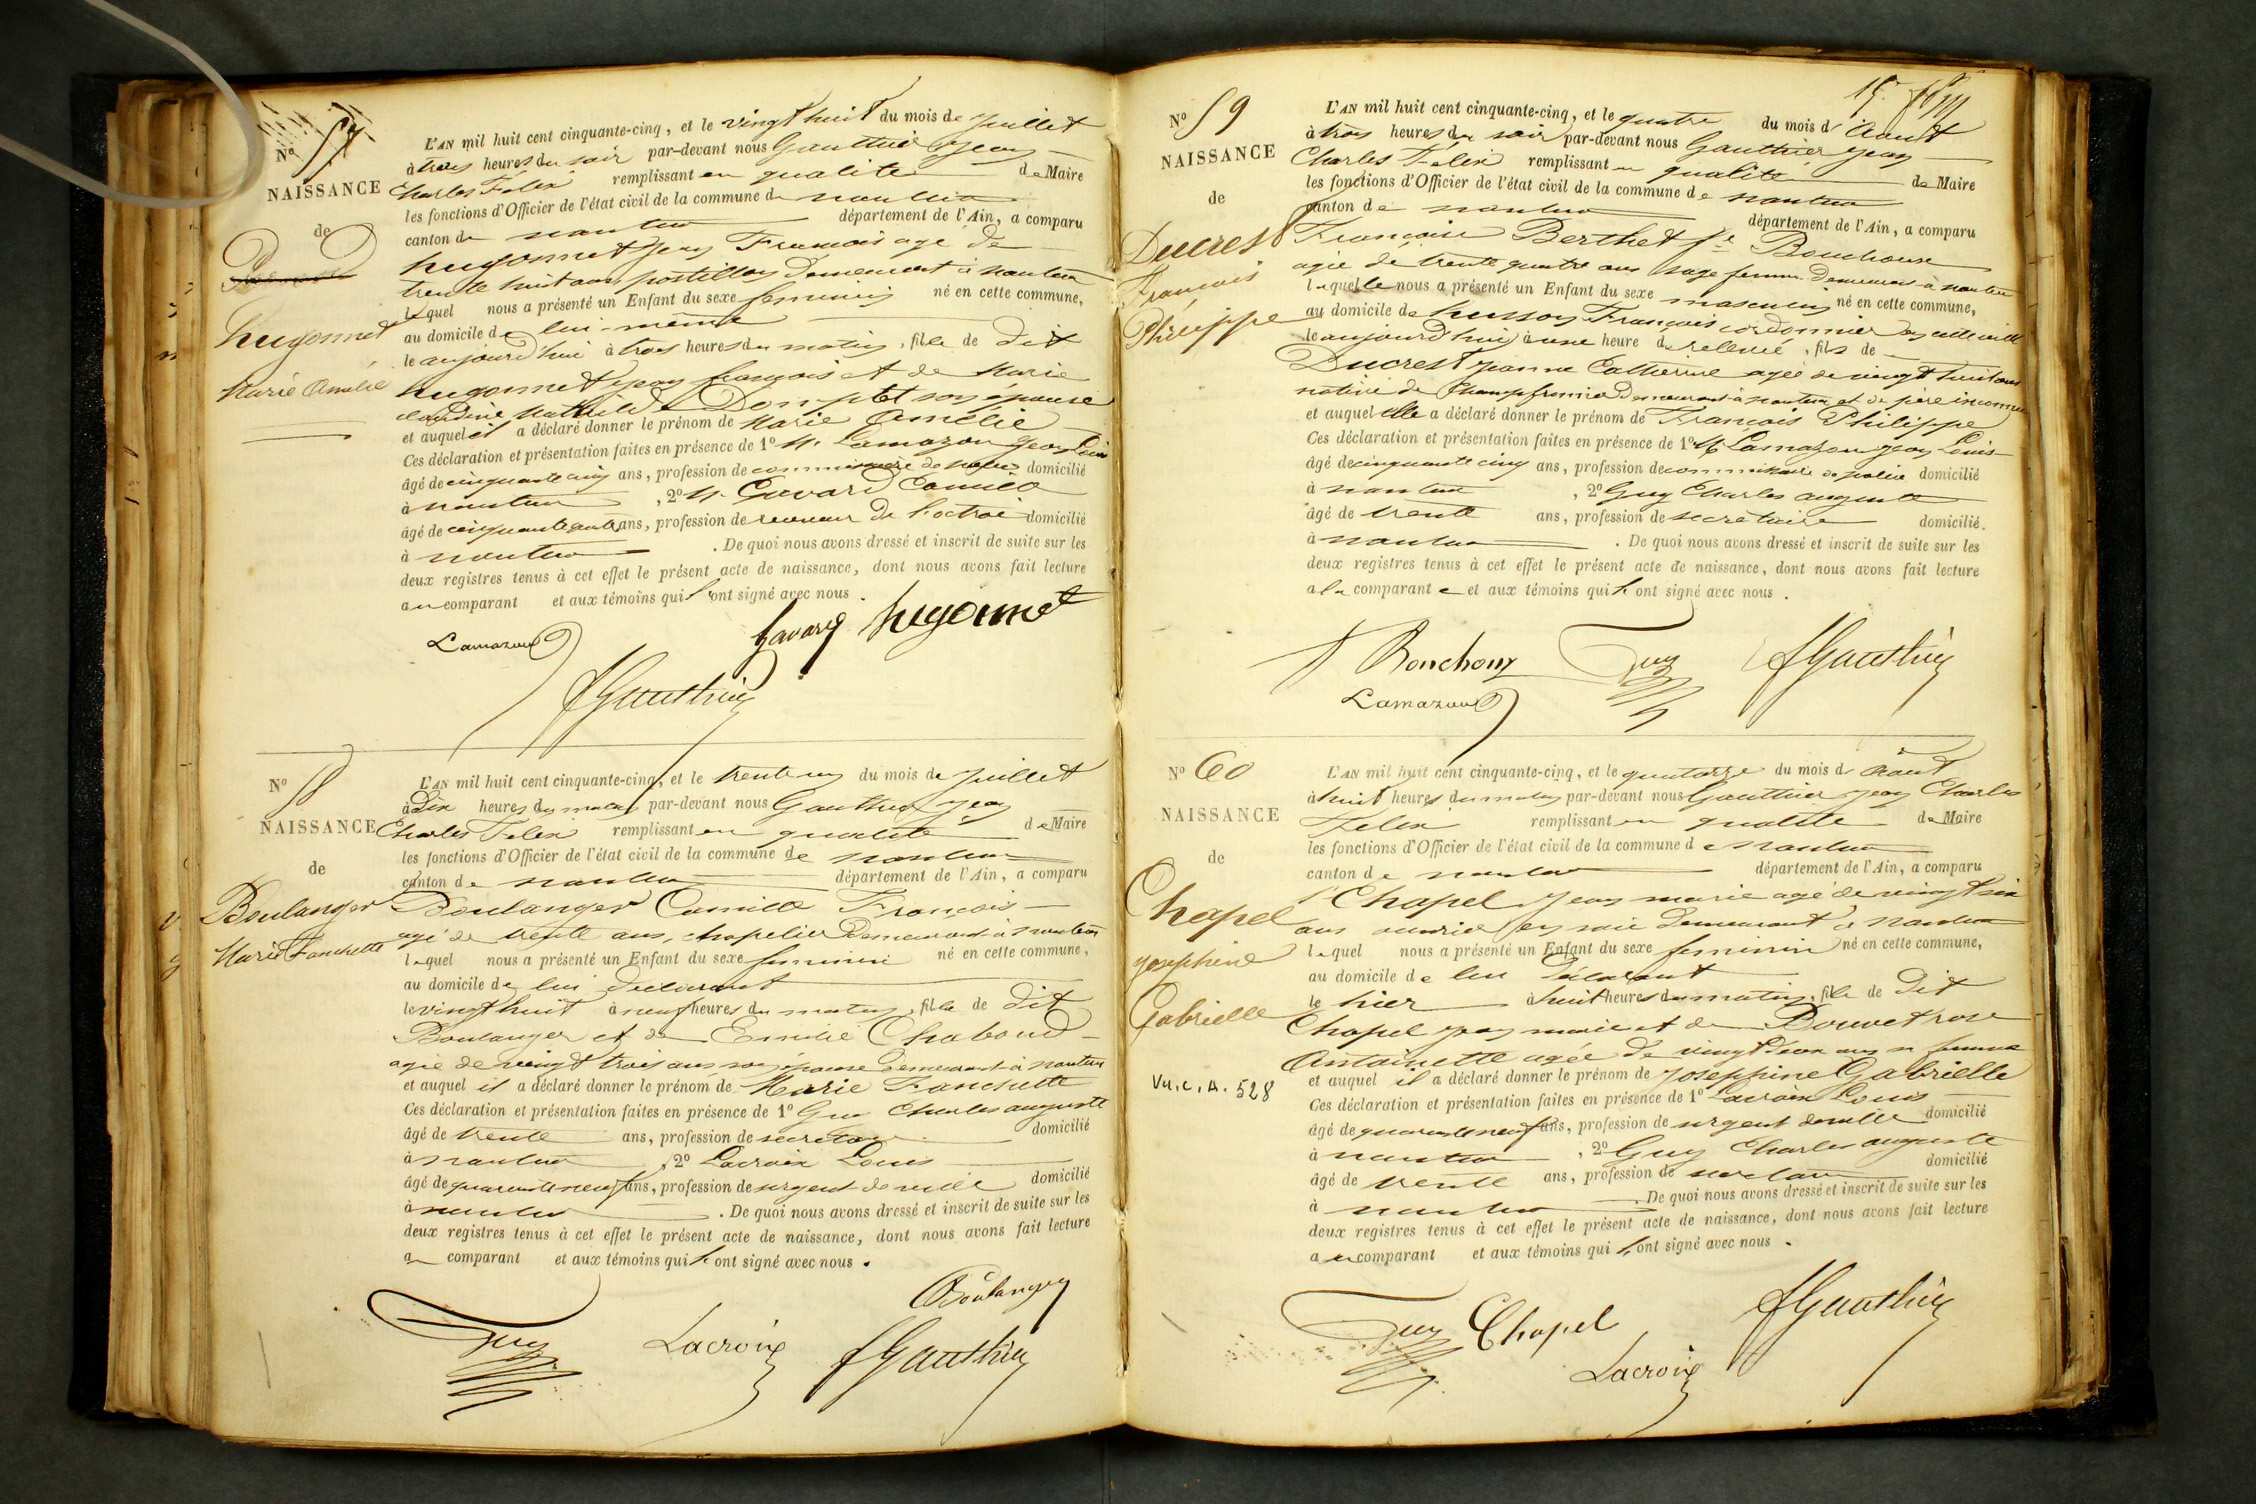 N° 57
NAISSANCE
de
hugonnet
Marie Amelie
L'AN mil huit cent cinquante-cinq, et le vingt huit du mois de juillet
à trois heures du soir par-devant nous Gauthier Jean
Charles Felix remplissant en qualite de Maire
les fonctions d'Officier de l'état civil de la commune de nantua
canton de nantua département de l'Ain, a comparu
hugonnet Jean Francois agé de
trente huit ans postillon Demeurant à nantua
lequel nous a présenté un Enfant du sexe feminin né en cette commune,
au domicile de lui-même
le aujourd'hui à trois heures du matin, fille de dit
hugonnet Jean françois et de Marie
claudine Mathilde Domptet son épouse
et auquel il a déclaré donner le prénom de Marie Amélie
Ces déclaration et présentation faites en présence de 1° M. Lamazon Jean Louis
âgé de cinquante cinq ans, profession de commissaire de police domicilié
à nantua, 2° M. Gavard Camille
âgé de cinquante ans, profession de receveur de l'octroi domicilié
à nantua. De quoi nous avons dressé et inscrit de suite sur les
deux registres tenus à cet effet le présent acte de naissance, dont nous avons fait lecture
au comparant et aux témoins qui l'ont signé avec nous.
Gavard hugonnet
Lamazon
fGauthier
N° 58
NAISSANCE
de
Boulanger
Marie Fanchette
L'AN mil huit cent cinquante-cinq, et le trente un du mois de juillet
à Dix heures du matin par-devant nous Gauthier Jean
Charles Felix remplissant en qualité de Maire
les fonctions d'Officier de l'état civil de la commune de nantua
canton de nantua département de l'Ain, a comparu
Boulanger Camille François
agé de trente ans, chapelier Demeurant à nantua
lequel nous a présenté un Enfant du sexe feminin né en cette commune,
au domicile de lui declarant
le vingt huit à neuf heures du matin, fille de dit
Boulanger et de Emilie Chaboud
agée de vingt trois ans son épouse demeurant à nantua
et auquel il a déclaré donner le prénom de Marie Fanchette
Ces déclaration et présentation faites en présence de 1° Guy Charles auguste
âgé de trente ans, profession de secretaire domicilié
à nantua, 2° Lacroix Louis
âgé de quarante neuf ans, profession de sergent de ville domicilié
à nantua. De quoi nous avons dressé et inscrit de suite sur les
deux registres tenus à cet effet le présent acte de naissance, dont nous avons fait lecture
au comparant et aux témoins qui l'ont signé avec nous.
Boulanger
Guy Lacroix fGauthier
N° 59
NAISSANCE
de
Ducrest
François
Philippe
L'AN mil huit cent cinquante-cinq, et le quatre du mois d'Aout
à trois heures du soir par-devant nous Gauthier Jean
Charles Felix remplissant en qualité de Maire
les fonctions d'Officier de l'état civil de la commune de nantua
canton de nantua département de l'Ain, a comparu
Françoise Berthet fe Bouchoux
agée de trente quatre ans sage femme demeurant à nantua
laquelle nous a présenté un Enfant du sexe masculin né en cette commune,
au domicile de husson François cordonnier en cette ville
le aujourd'hui à une heure de relevée, fils de
Ducrest Jeanne Catherine agée de vingt huit ans
native de Champfromier demeurant à nantua et de père inconnu
et auquel elle a déclaré donner le prénom de François Philippe
Ces déclaration et présentation faites en présence de 1° M. Lamazon Jean Louis
âgé de cinquante cinq ans, profession de commissaire de police domicilié
à nantua, 2° Guy Charles auguste
âgé de trente ans, profession de secretaire domicilié
à nantua. De quoi nous avons dressé et inscrit de suite sur les
deux registres tenus à cet effet le présent acte de naissance, dont nous avons fait lecture
a la comparante et aux témoins qui l'ont signé avec nous.
f Bouchoux Guy fGauthier
Lamazon
N° 60
NAISSANCE
de
Chapel
Josephine
Gabrielle
Vu.c.A. 528
L'AN mil huit cent cinquante-cinq, et le quatorze du mois d'Aout
à huit heures du matin par-devant nous Gauthier Jean Charles
Felix remplissant en qualité de Maire
les fonctions d'Officier de l'état civil de la commune de nantua
canton de nantua département de l'Ain, a comparu
Chapel Jean marie agé de vingt six
ans ouvrier en soie demeurant à nantua
lequel nous a présenté un Enfant du sexe feminin né en cette commune,
au domicile de lui déclarant
le hier à huit heures du matin, fille de dit
Chapel Jean marie et de Bouvet rose
Antoinette agée de vingt deux ans sa femme
et auquel il a déclaré donner le prénom de Josephine Gabrielle
Ces déclaration et présentation faites en présence de 1° Lacroix Louis
âgé de quarante neuf ans, profession de sergent de ville domicilié
à nantua, 2° Guy Charles auguste
âgé de trente ans, profession de secretaire domicilié
à nantua. De quoi nous avons dressé et inscrit de suite sur les
deux registres tenus à cet effet le présent acte de naissance, dont nous avons fait lecture
au comparant et aux témoins qui l'ont signé avec nous.
Guy Chapel fGauthier
Lacroix